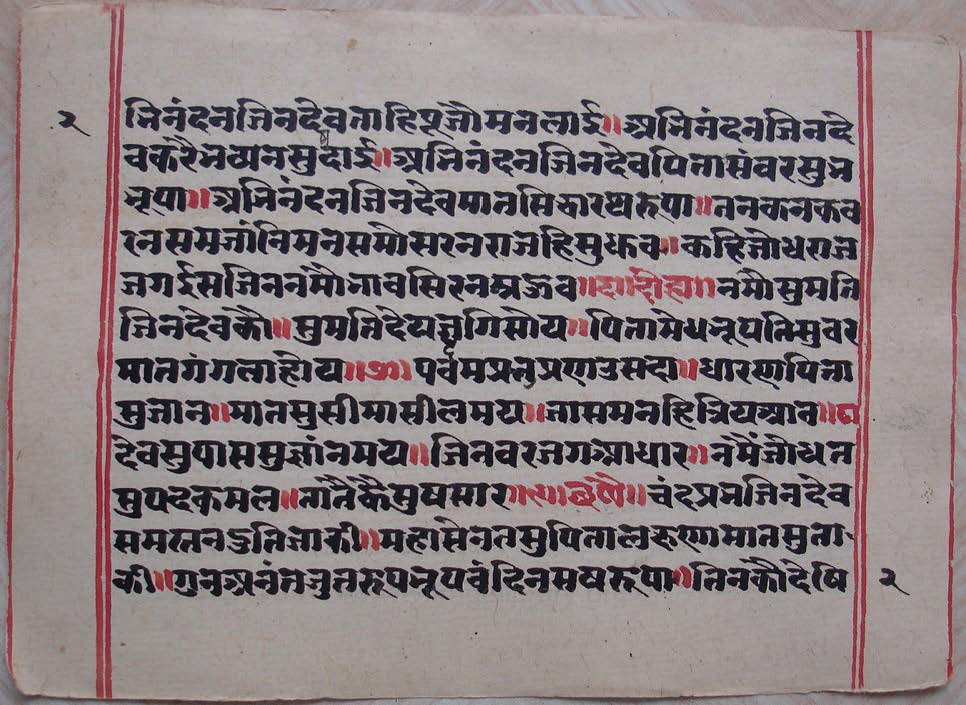 २ भिनंदनजिनदेवताहिपूजौमनलाई॥अभिनंदनजिनदे
वकरैमघानसुदाई॥अभिनंदनजिनदेवपितासंवरसुभ
भूपा॥अभिनंदनजिनदेवमातसिद्धारथरूपा॥तनकनकव
रनसमजांनिमनसमौसरनराजहिसुफव॥कहिजोधराज
जगईसजिननमौंभावसिरनम्रऊव॥८॥दोहा॥नमौसुमति
जिनदेवकौ॥सुमतिदेयजुगिसोय॥पितामेधनृपतिसुवर
मातगंगलाहोय॥७॥पदमप्रभुप्रणउसदा॥धारणपिता
सुजान॥मातसुसीमासीलमय॥जासमनहित्रियआन॥८
देवसुपाससुज्ञांनमय॥जिनवरजगआधार॥नमैंजोधत
सुपदकमल॥तातैंकैसुषसार॥९॥छप्पै॥चंदप्रभजिनदेव
समस्तनदुतिजाकी॥महासेनतसुपितालछणामातसुता
की॥गुनअनंतजुतरूपभूपवंदिनमषरूपा॥तिनकौदेषि २